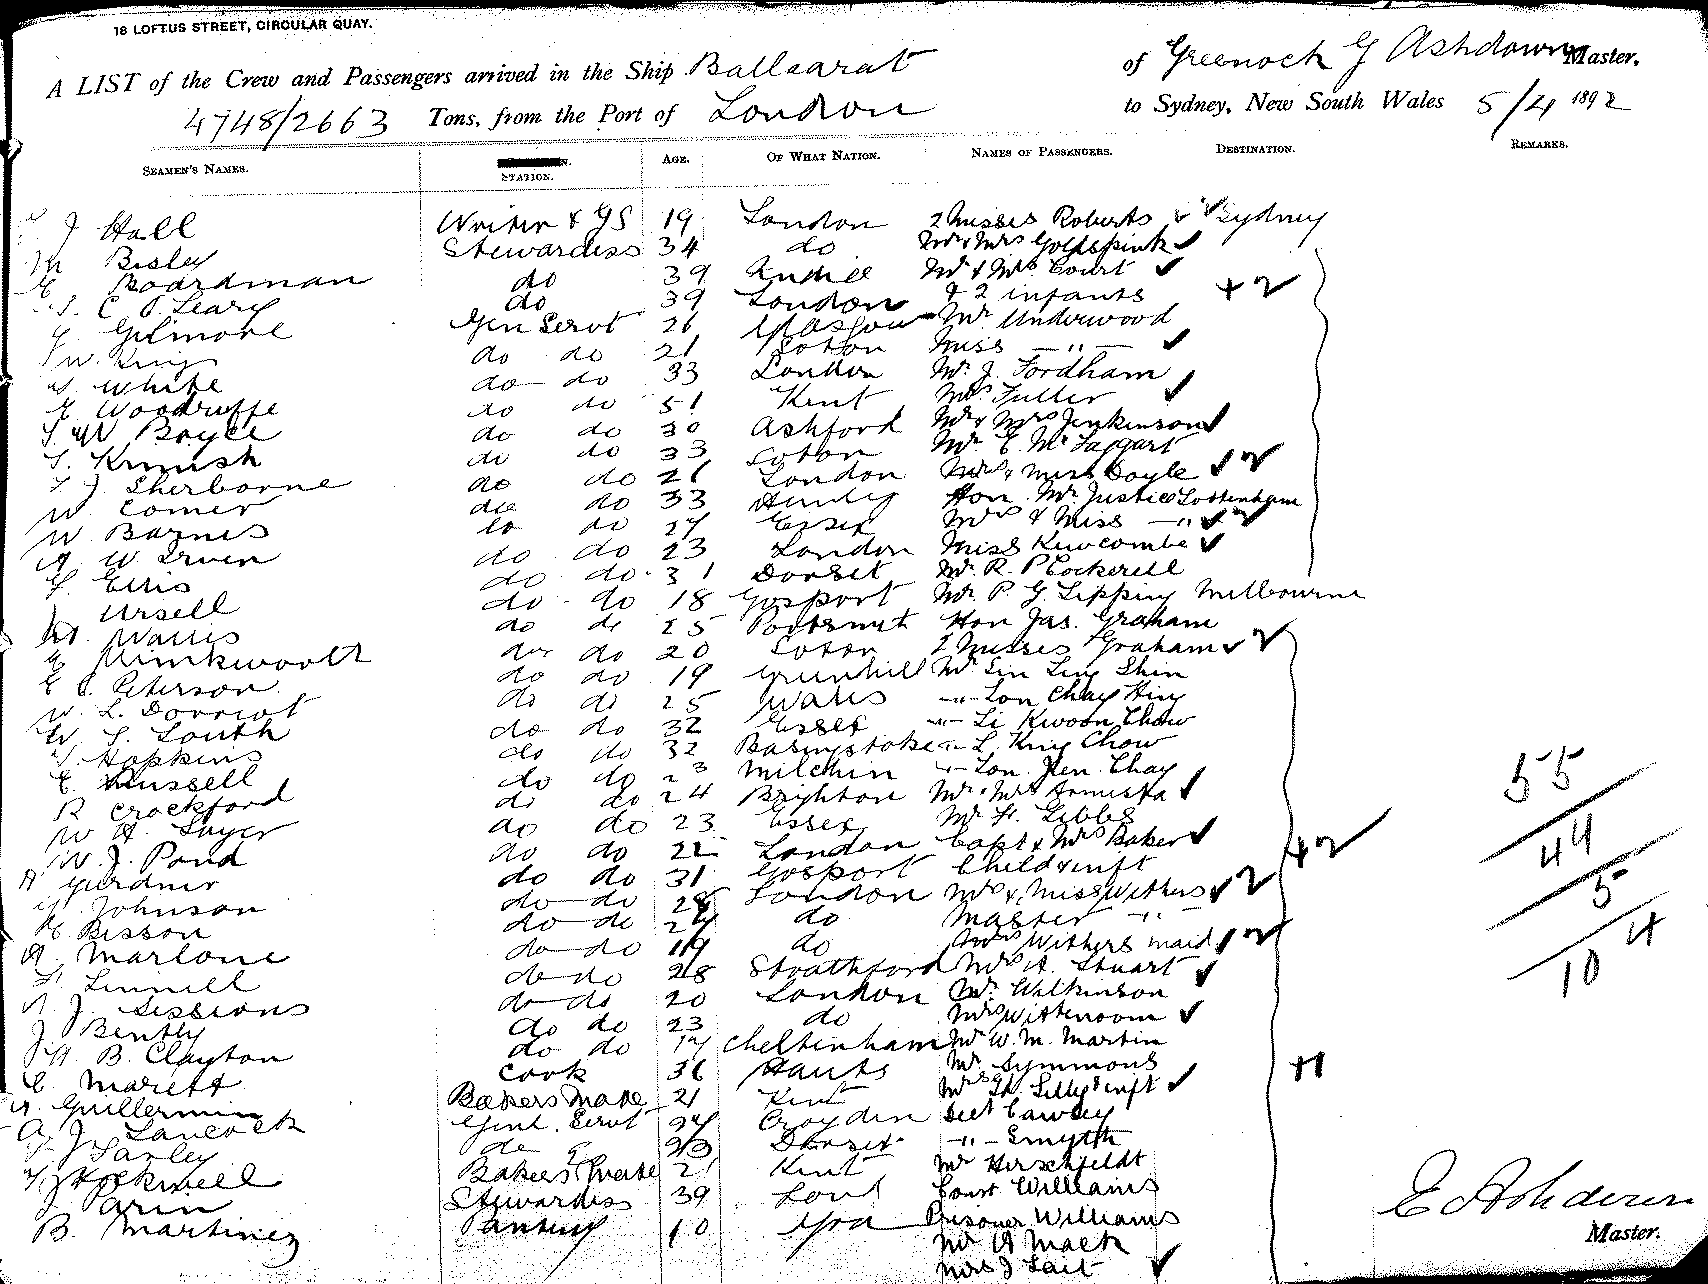 18 LOFTUS STREET, CIRCULAR QUAY.
A LIST of the Crew and Passengers arrived in the Ship Ballaarat of Greenock G Ashdown Master,
4748/2663 Tons, from the Port of London to Sydney, New South Wales 5/4 1892
SEAMEN'S NAMES. STATION. AGE. OF WHAT NATION. NAMES OF PASSENGERS. DESTINATION. REMARKS.
J Hall Writer & GS 19 London 2 Misses Roberts Sydney
M Bisley Stewardess 34 do Mr & Mrs Goldspink
E Boardman do 39 Mr & Mrs Court
S. C O'Leary do 39 London & 2 infants +2
G Gilmore Gen Servt 26 Glasgow Mr Underwood
W. King do do 21 Soton Miss — " —
White do do 33 London Mr J. Fordham
E Woodruffe do do 51 Kent Mrs Fuller
Boyce do do 30 Ashford Mr & Mrs Jenkinson
Krmish do do 33 Soton Mr E. McTaggart
J Sherborne do do 21 London Mrs & Miss Doyle
W Comer do do 33 Henley Hon Mr Justice Lottenham
W Barnes do do 27 Essex Mrs & Miss — "
A W Irven do do 23 London Miss Kewcombe
G Ellis do do 31 Dorset Mr R. P Cockerell
Ursell do do 18 Gosport Mr P. G. Tipping Melbourne
Wallis do do 25 Portsmut Hon Jas. Graham
do do 20 Soton 2 Misses Graham
E C. Peterson do do 19 Greenhill Mr Sin Ling Shin
W. L. Dorriot do do 25 Wales " Lon Chay Hing
W S. South do do 32 Essex " Li Kwoon Chow
Hopkins do do 32 Basingstoke " L. King Chow
E Russell do do 23 Milchin " Lon Jien Chay
R Crockford do do 24 Brighton Mr & Mrs
W A. Sayer do do 23 Essex Mr H. Gibbs
W. J. Pond do do 22 London Capt & Mrs Baker +2
A Gardner do do 31 Gosport Child & inft
Johnson do do 28 London Mrs & Miss Withers
E Bisson do do 24 do Master "
A. Marlone do do 19 do Mrs Withers maid
Linnell do do 28 Strathford Mrs A. Stuart
A J. Sessions do do 20 London Mr Wilkinson
J Bently do do 23 do Mrs Wittenoom
H. B. Clayton do do 17 Cheltenham Mr W. M. Martin
C. Marett Cook 36 Hants Mr Symmons +1
Guillermin Bakers Mate 21 Kent Mrs Th. Lilly & inft
A J. Lancock Genl. Servt 24 Croydon Det Cawsey
Farley do 23 Dorset " Smyth
Stockwell Bakers Mate 21 Kent Mr Herschfeldt
Parin Stewardess 39 Lond Count Williams
B. Martinez Pantry 40 Goa Prisoner Williams
Mr A Mack
Mrs J Tait
55
44
5
104
G Ashdown
Master.